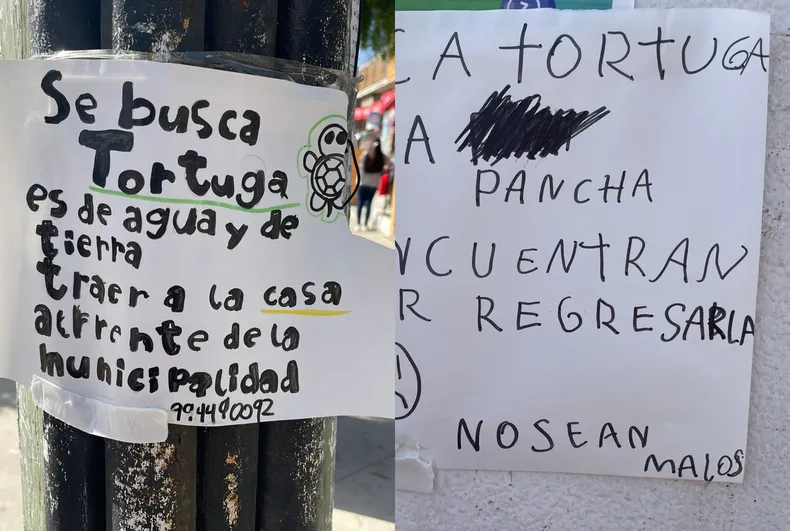 Se busca
Tortuga
es de agua y de
tierra
traer a la casa
alfrente de la
municipalidad
994490092
A TORTUGA
A
PANCHA
NCUENTRAN
R REGRESARLA
NO SEAN
MALOS